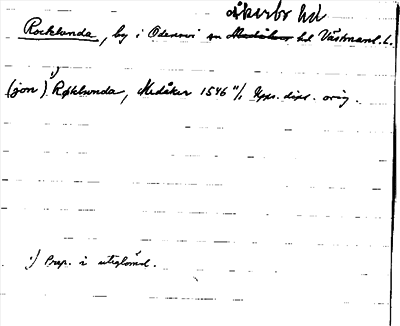 åkerbo hd
Rocklunda, by i Odensvi sn Medåker hd Västmanl. l.
(jon) ¹) Røklunda, Medåker 1546 11/1 Upps. dipl. orig.
¹) Prep. i uteglömd.